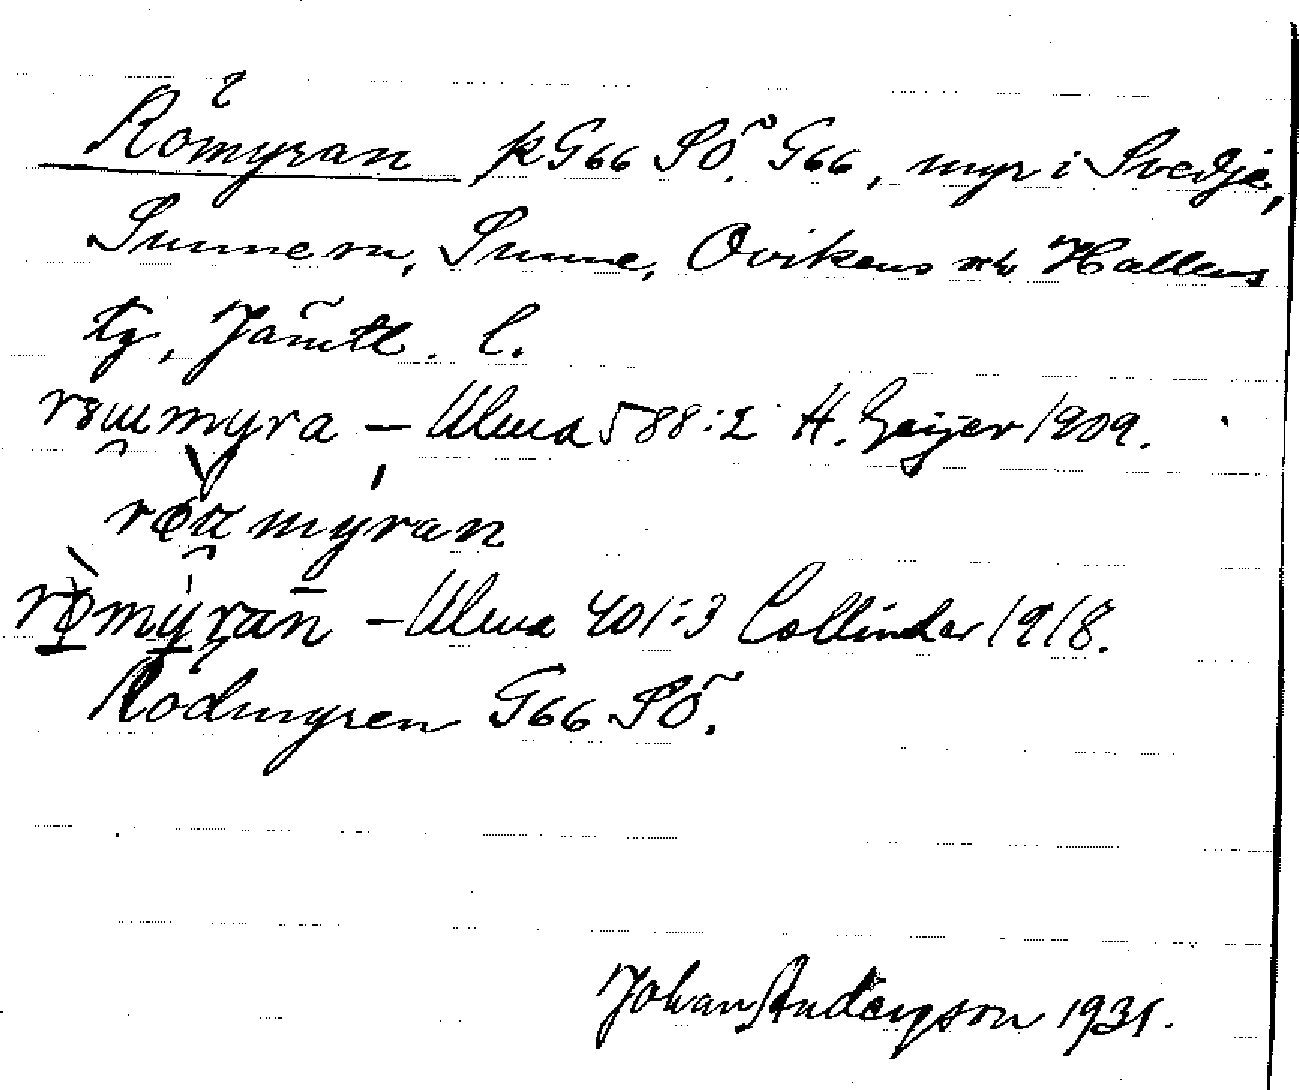 Römyran på G66 SÖ. G66, myr i Svedje,
Sunne sn, Sunne, Ovikens och Hallens
tg, Jämtl. l.
myra – Ulma 588:2 H. Geijer 1909.
myran
römyran – Ulma 401:3 Collinder 1918.
Rödmyren G66 SÖ.
Johan Anderson 1931.